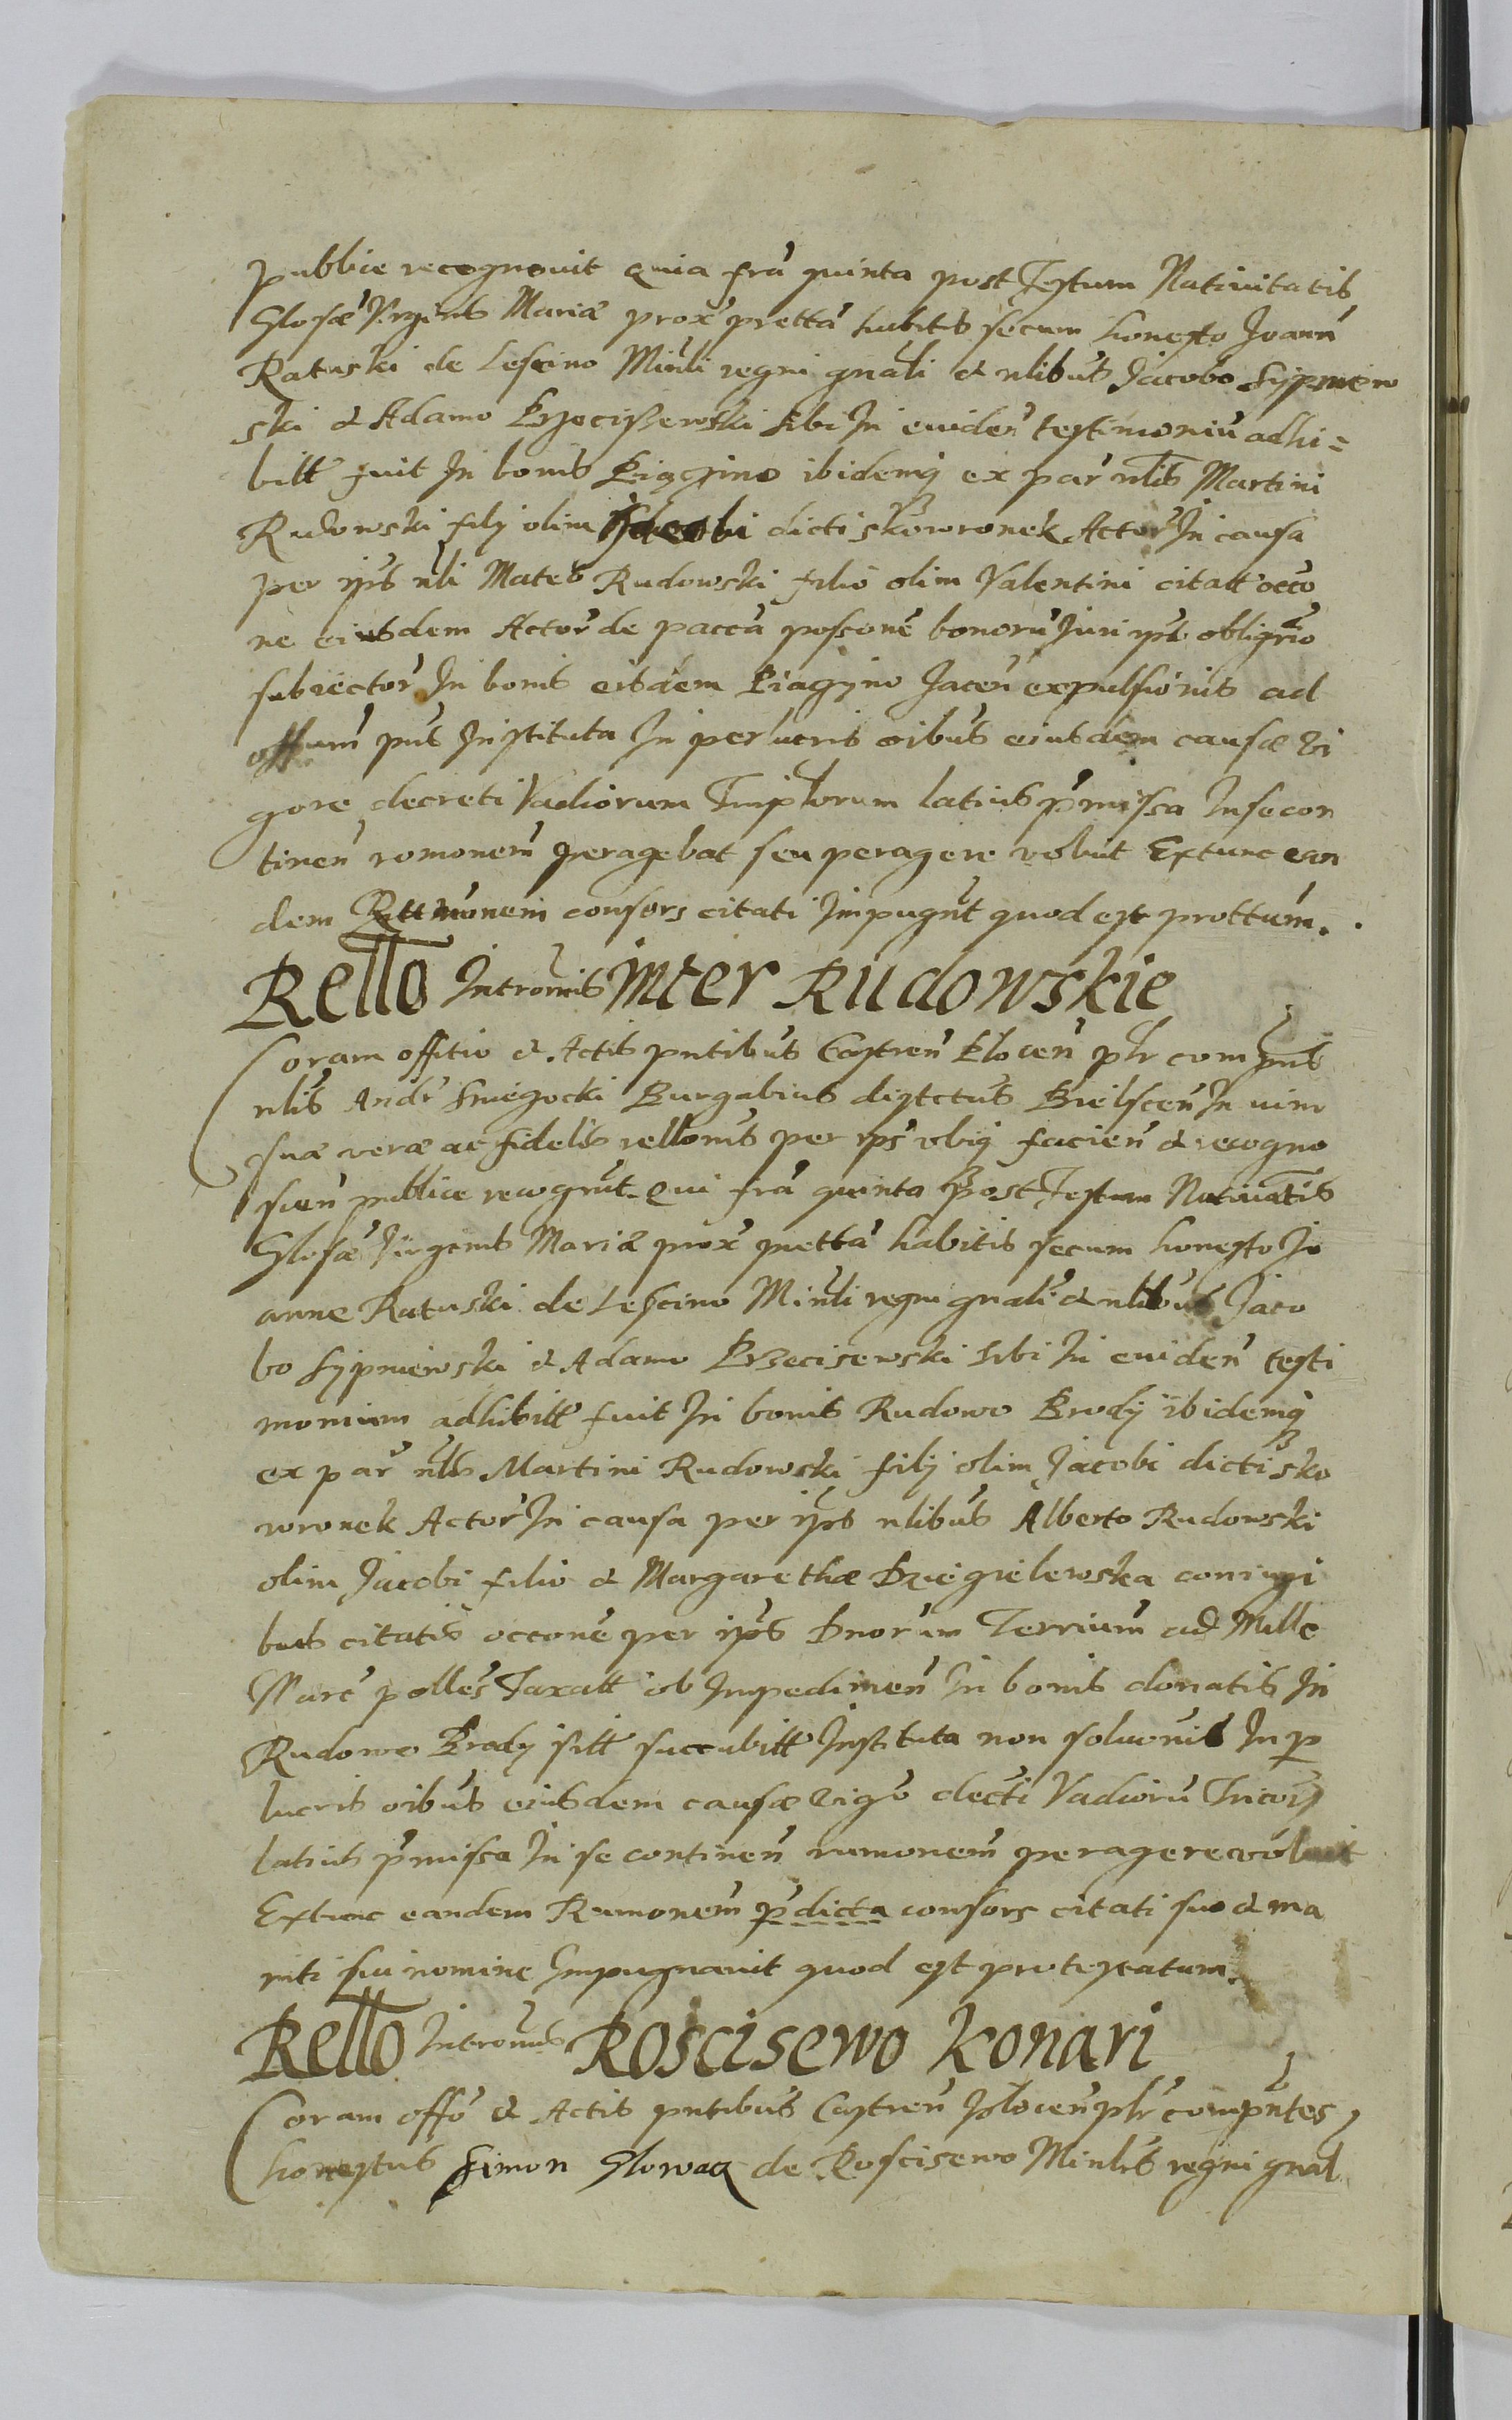 publice recognouit quia fra quinta post Festum Natiuitatis
Glosæ Virginis Mariæ prox prettà habitis secum honesto Joann
Ratuski de Lescino Minli regni gnali & nlibus Jacobo Sypniew
ski & Adamo Przeciszewski sibi In euiden testimoniū adhi=
bitt fuit In bonis ibidemq ex par nlis Martini
Rudowski filÿ olim Jacobi dicti skowronek Actor In causa
per ips nli Mateo Rudowski filio olim Valentini citatt occo
ne eiusdem Actor de pacca possione bonorū Juri ips obligrio
subiector In bonis eisdem Jacen expulsionis ad
offium pns Instituta In per lucris oibus eiusdem causæ vi
gore decreti Vadiorum Triplorum latius pmissa In se con
tinen romonem peragebat seu peragere voluit Extunc ean
dem Rttmonem consors citati Impugnt quod est prottum.
Rello Intromis inter Rudowskie
Coram offitio & Actis pntibus Castren Plocen plr compns
nlis Andr Sniegocki Burgabius distctus Bielscen In vim
suæ veræ ac fidelis rellonis per ips obij facien & recogno
scen publice recognt. Qui fra quinta Post Festum Natiuatis
Glosæ Virginis Mariæ prox prettà habitis secum honesto Jo
anne Ratuski de Lescino Minli regni gnali & nlibus Jaco
bo Sypniewski & Adamo Przecisewski sibi In euiden testi
monium adhibitt fuit In bonis Rudowo Brody ibidemq
ex par nlis Martini Rudowski filÿ olim Jacobi dicti sko
wronek Actor In causa per ips nlibus Alberto Rudowski
olim Jacobi filio & Margarethæ Dziegielewska coniugi
bus citatis occone per ips Dnorum Terrium ad Mille
Marc polles Taxatt ob Impedimen In bonis donatis In
Rudowo Brody sitt succubitt Instituta non soluonis In p
lucris oibus eiusdem causæ vigo decti Vadiorū
latius pmissa In se continen rumonem peragere voluit
Extunc eandem Rumonem pdicta consors citati suo & ma
riti sui nomine Impugnauit quod est protestatum.
Rello Intromis Roscisewo Konari
Coram offo & Actis pntibus Castren Plocen plr compntes
honestus Simon Slowag de Roscisewo Minlis regni gnal